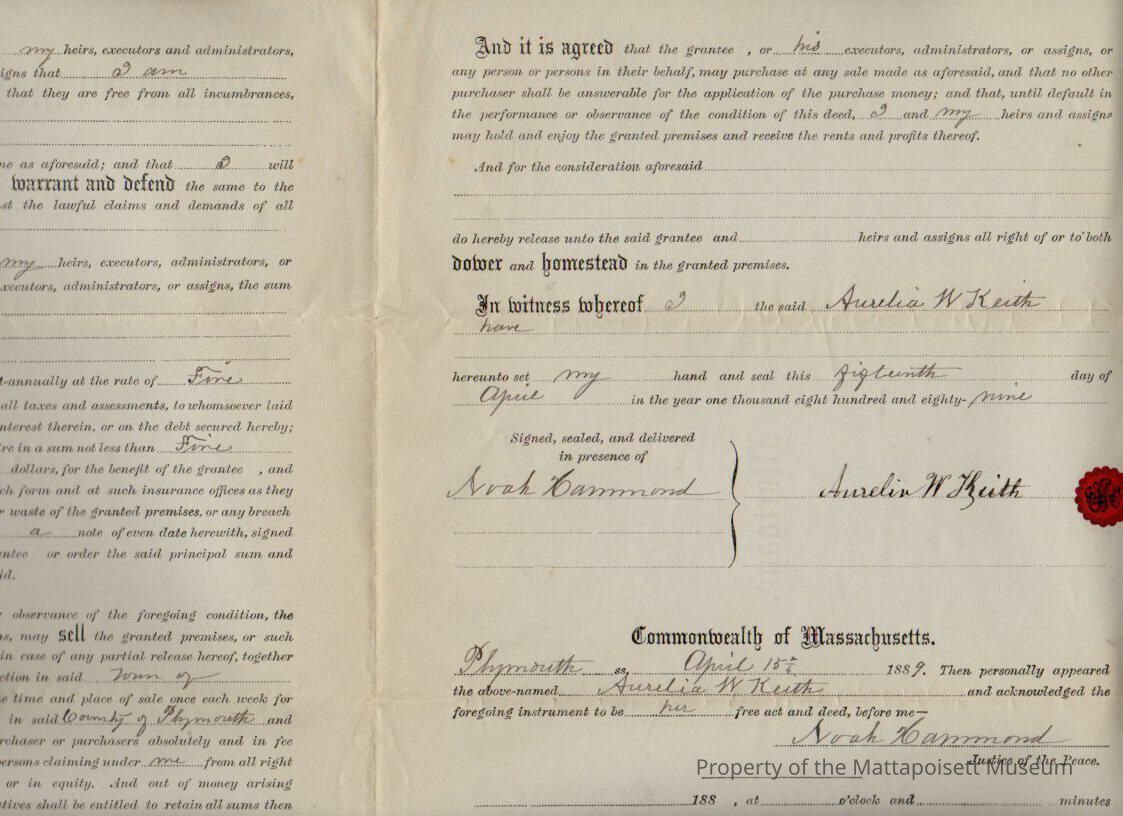 my heirs, executors and administrators,
igns that I am
that they are free from all incumbrances,
ne as aforesaid; and that I will
warrant and defend the same to the
st the lawful claims and demands of all
my heirs, executors, administrators, or
xecutors, administrators, or assigns, the sum
t-annually at the rate of Five
all taxes and assessments, to whomsoever laid
nterest therein, or on the debt secured hereby;
re in a sum not less than Five
dollars, for the benefit of the grantee , and
ch form and at such insurance offices as they
r waste of the granted premises, or any breach
a note of even date herewith, signed
ntee or order the said principal sum and
id.
r observance of the foregoing condition, the
ns, may sell the granted premises, or such
in case of any partial release hereof, together
ction in said Town of
e time and place of sale once each week for
in said County of Plymouth and
rchaser or purchasers absolutely and in fee
ersons claiming under me from all right
or in equity. And out of money arising
tives shall be entitled to retain all sums then
And it is agreed that the grantee , or his executors, administrators, or assigns, or
any person or persons in their behalf, may purchase at any sale made as aforesaid, and that no other
purchaser shall be answerable for the application of the purchase money; and that, until default in
the performance or observance of the condition of this deed, I and my heirs and assigns
may hold and enjoy the granted premises and receive the rents and profits thereof.
And for the consideration aforesaid
do hereby release unto the said grantee and heirs and assigns all right of or to both
dower and homestead in the granted premises.
In witness whereof I the said Aurelia W Keith
have
hereunto set my hand and seal this fifteenth day of
April in the year one thousand eight hundred and eighty-nine
Signed, sealed, and delivered
in presence of
Noah Hammond Aurelia W Keith
Commonwealth of Massachusetts.
Plymouth ss. April 15th 1889. Then personally appeared
the above-named Aurelia W Keith and acknowledged the
foregoing instrument to be her free act and deed, before me—
Noah Hammond
Justice of the Peace.
Property of the Mattapoisett Museum
188 , at o'clock and minutes